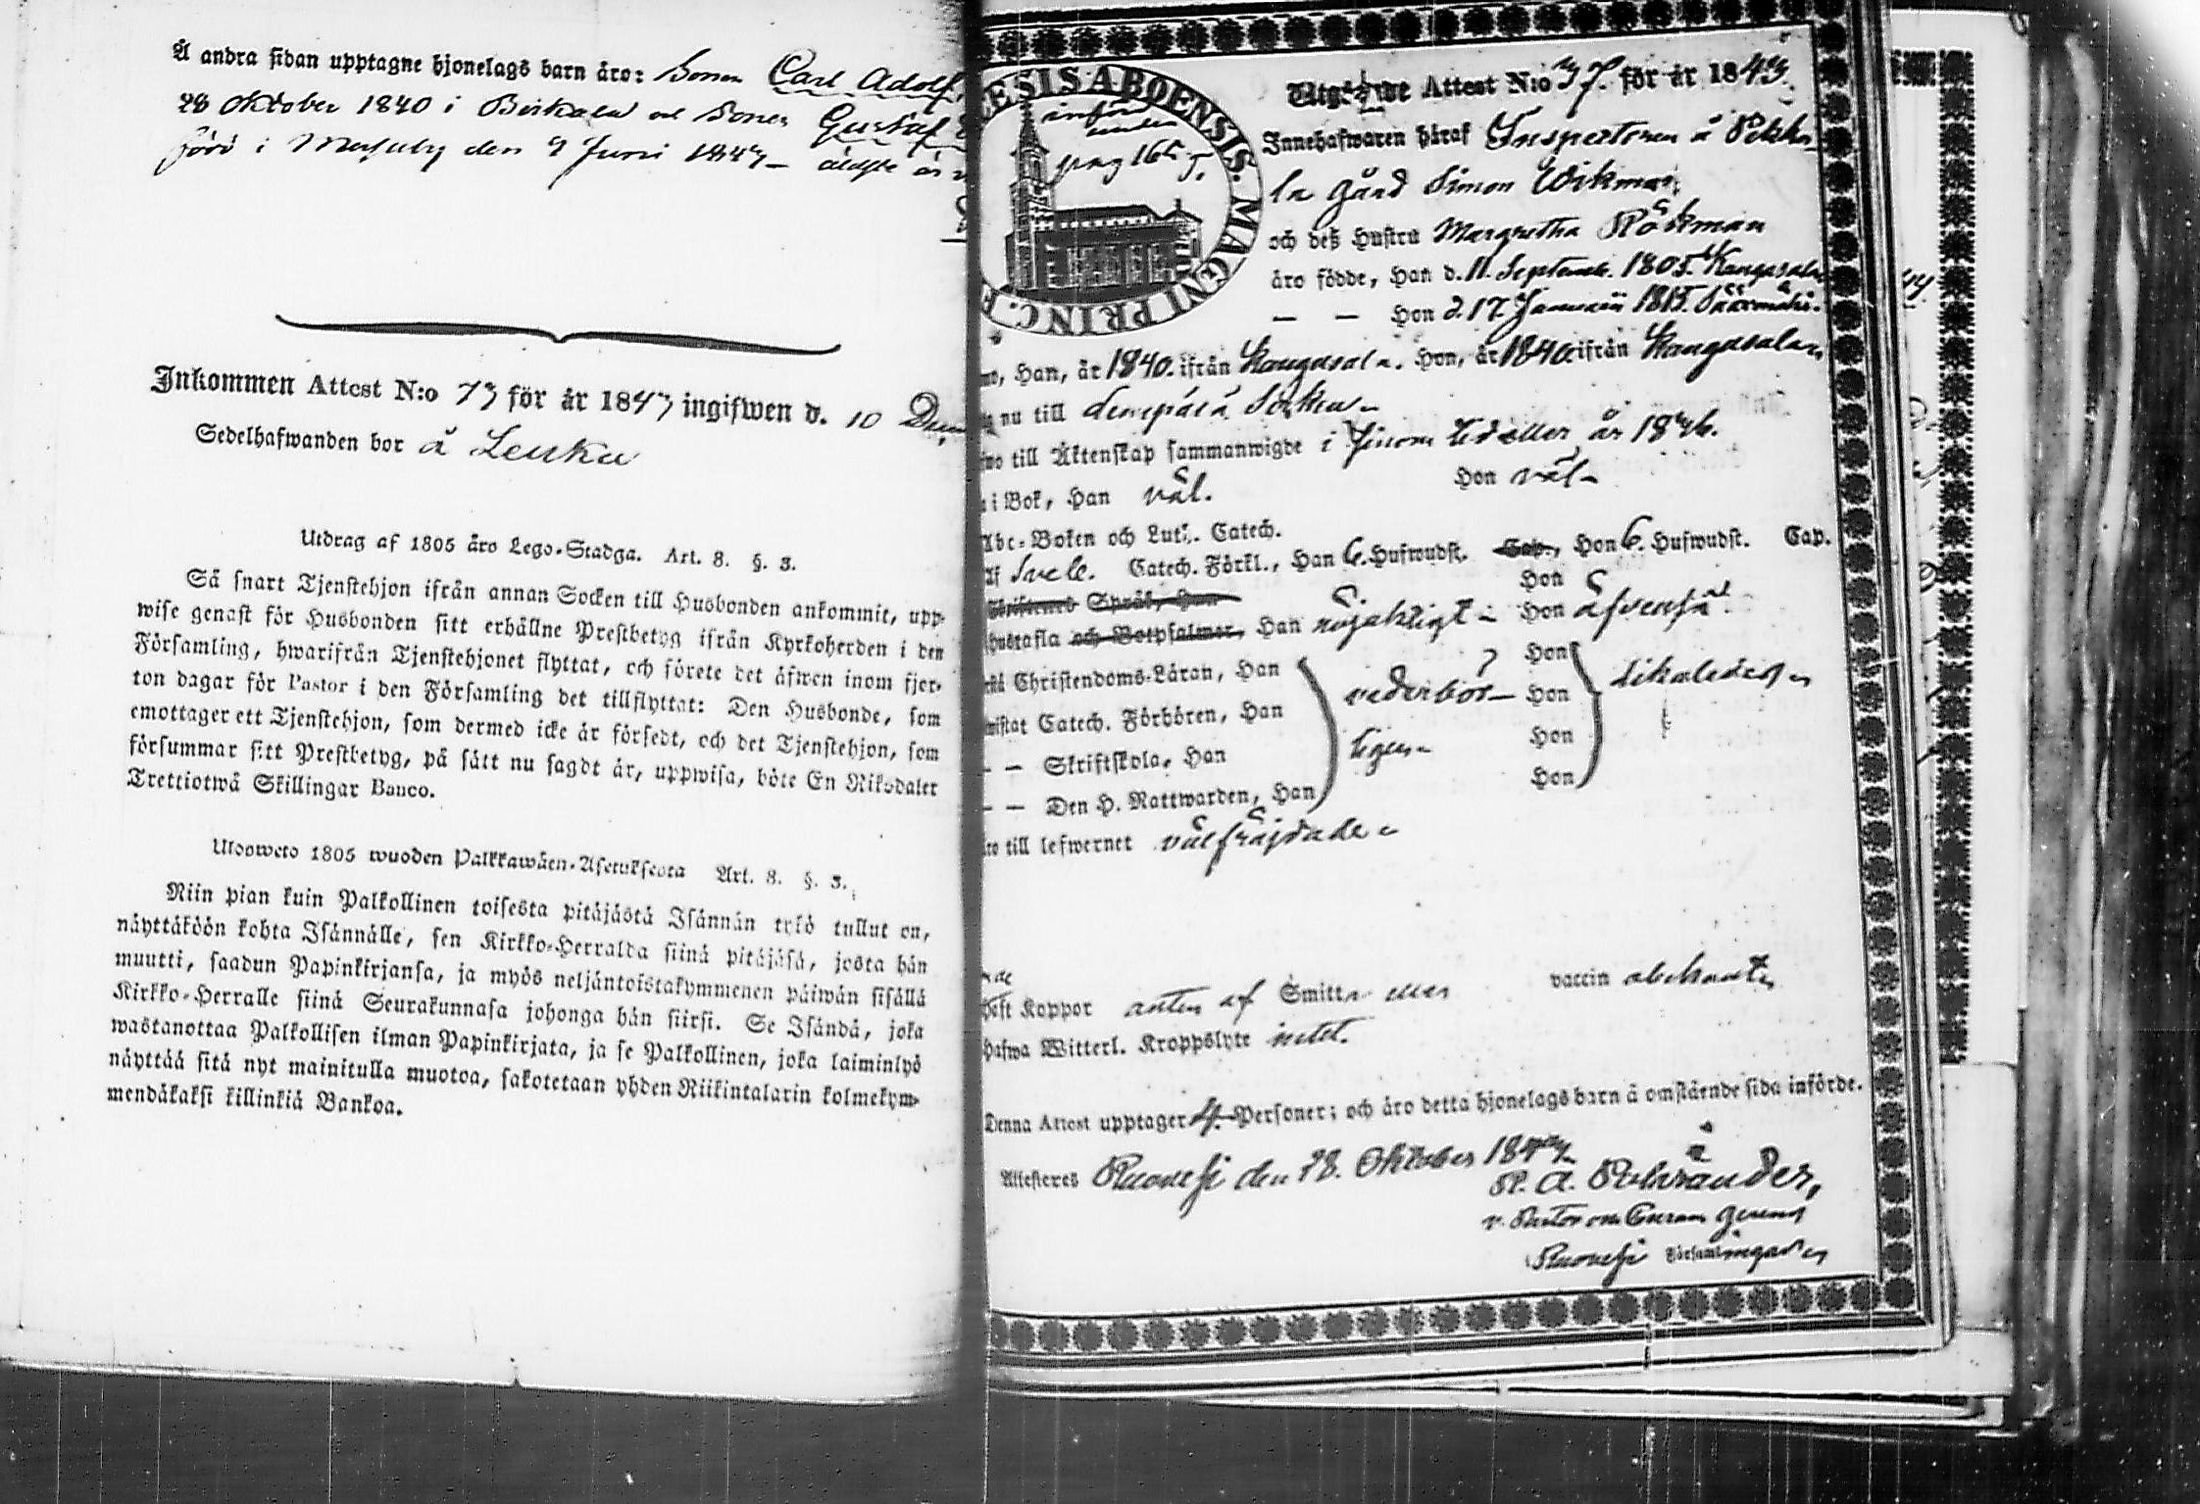 Å andra sidan upptagne hjonelags barn äro: Sonen Carl Adolf,
28 Oktober 1840 i Birkala och Sonen Gustaf
född i Messuby den 9 Juni 1843
Inkommen Attest N:o 73 för år 1843 ingifwen d. 10
Sedelhafwanden bor å Leuku
Utdrag af 1805 åro Lego-Stadga. Art. 8. §. 3.
Så snart Tjenstehjon ifrån annan Socken till Husbonden ankommit, upp-
wise genast för Husbonden sitt erhållne Prestbetyg ifrån Kyrkoherden i den
Församling, hwarifrån Tjenstehjonet flyttat, och förete det äfwen inom fjor-
ton dagar för Pastor i den Församling det tillflyttat: Den Husbonde, som
emottager ett Tjenstehjon, som dermed icke är försedt, och det Tjenstehjon, som
försummar sitt Prestbetyg, på sätt nu sagdt är, uppwisa, böte En Riksdaler
Trettiotwå Skillingar Banco.
Ulosweto 1805 wuoden Palkkawäen-Asetuksesta Art. 8. §. 3.
Niin pian kuin Palkollinen toisesta pitäjästä Isännän tykö tullut on,
näyttäköön kohta Isännälle, sen Kirkko-Herralda siinä pitäjäsä, josta hän
muutti, saadun Papinkirjansa, ja myös neljäntoistakymmenen päiwän sisällä
Kirkko-Herralle siinä Seurakunnasa johonga hän siirsi. Se Isändä, joka
wastanottaa Palkollisen ilman Papinkirjata, ja se Palkollinen, joka laiminlyö
näyttää sitä nyt mainitulla muotoa, sakotetaan yhden Riikintalarin kolmekym-
mendäkaksi killinkiä Bankoa.
ESIS ABOENSIS. MAGNI PRINC. F
införd
under
pag 165
Utgående Attest N:o 37. för år 1843.
Innehafwaren häraf Inspectoren å Pekka
la gård Simon Wikman
och deß Hustru Margretha Röckman
äro födde, Han d. 11. Septemb. 1805. Kangasala
— — Hon d. 17 Januarii 1815. Sääxmäki.
Han, år 1840. ifrån Kangasala. Hon, år 1840 ifrån Kangasala
nu till Lempäälä Socken
till Äktenskap sammanwigde i
i Bok, Han väl. Hon väl
Abc-Boken och Luth. Catech.
af Sveb. Catech. Förkl., Han 6. Hufwudst. Cap., Hon 6. Hufwudst. Cap.
Språk, Han Hon
Hustafla och Botpsalmer, Han nöjaktigt Hon äfvenså
Christendoms-Läran, Han Hon
Catech. Förhören, Han vederbör- Hon likaledes
— — Skriftskola, Han ligen Hon
— — Den H. Nattwarden, Han Hon
till lefwernet välfräjdade
haft Koppor antin af Smitta eller vaccin obekant
hafwa Witterl. Kroppslyte intet.
Denna Attest upptager 4. Personer; och äro detta hjonelags barn å omstående sida införde.
Attesteras Ruovesi den 28. Oktober 1843
v. Pastor
Ruovesi Församlingar